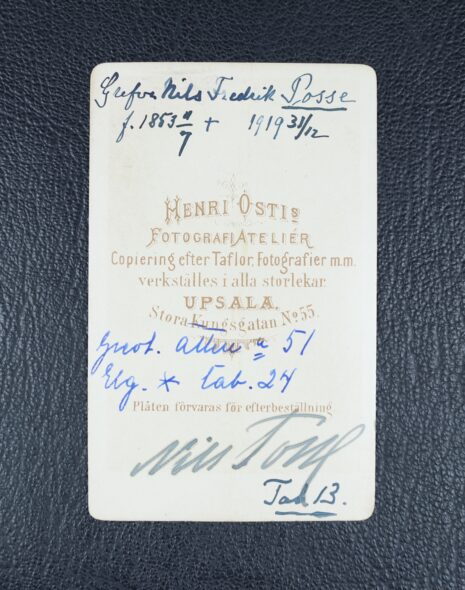 Grefve Nils Fredrik Posse
f. 1853 /7 + 1919 31/12
HENRI OSTIS
FOTOGRAFIATELIÉR
Copiering efter Taflor, Fotografier m.m.
verkställes i alla storlekar.
UPSALA,
Stora Kungsgatan No 55.
51
Elg. * tab. 24
Plåten förvaras för efterbeställning
Nils Posse
Tab 13.